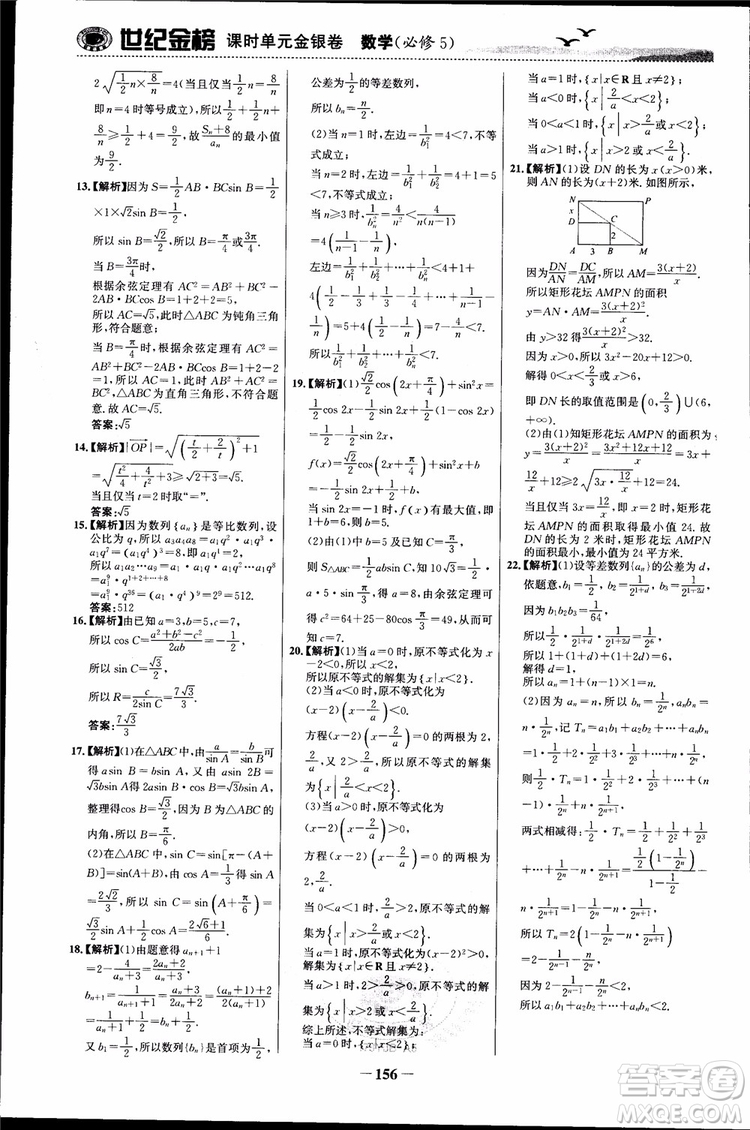 世纪金榜 课时单元金银卷 数学(必修5)
2√(1/2 n×8/n)+1/2=9/2(当且仅当1/2 n=8/n,
即n=4时等号成立),所以1/2 n+
8/n+1/2≥4+1/2=9/2,故(Sn+8)/an的最小值
为9/2.
13.【解析】因为S=1/2 AB·BCsin B=1/2
×1×√2sin B=1/2,
所以sin B=√2/2,所以B=π/4或3π/4.
当B=3π/4时,
根据余弦定理有AC²=AB²+BC²-
2AB·BCcos B=1+2+2=5,
所以AC=√5,此时△ABC为钝角三角
形,符合题意;
当B=π/4时,根据余弦定理有AC²=
AB²+BC²-2AB·BCcos B=1+2-2
=1,所以AC=1,此时AB²+AC²=
BC²,△ABC为直角三角形,不符合题
意.故AC=√5.
答案:√5
14.【解析】|OP|=√((t/2+2/t)²+1
=√(t²/4+4/t²+3)≥√(2+3)=√5.
当且仅当t=2时取“=”.
答案:√5
15.【解析】因为数列{an}是等比数列,设
公比为q,所以a3a4a8=a1q²·a1q³·
a1q⁷=a1³q¹²=(a1q⁴)³=8.
所以a1a2…a9=a1·a1q·…·a1q⁸
=a1⁹·q^(1+2+…+8)
=a1⁹·q³⁶=(a1·q⁴)⁹=2⁹=512.
答案:512
16.【解析】由已知a=3,b=5,c=7,
所以cos C=(a²+b²-c²)/2ab=-1/2,
所以sin C=√3/2,
所以R=c/(2sin C)=7√3/3.
答案:7√3/3
17.【解析】(1)在△ABC中,由a/sin A=b/sin B可
得asin B=bsin A,又由asin 2B=
√3bsin A得2asin B·cos B=√3bsin A,
整理得cos B=√3/2,因为B为△ABC的
内角,所以B=π/6.
(2)在△ABC中,sin C=sin[π-(A+
B)]=sin(A+B),由cos A=1/3得sin A
=2√2/3,所以sin C=sin(A+π/6)=√3/2
sin A+1/2cos A=(2√6+1)/6.
18.【解析】(1)由题意得an+1+1
=2-4/(an+3)=(2an+2)/(an+3),
bn+1=1/(an+1+1)=(an+3)/(2an+2)=1/(an+1)+1/2=bn+1/2.
又b1=1/2,所以数列{bn}是首项为1/2,
公差为1/2的等差数列,
所以bn=n/2.
(2)当n=1时,左边=1/b1²=4<7,不等
式成立;
当n=2时,左边=1/b1²+1/b2²=4+1=5<7,
不等式成立;
当n≥3时,1/bn²=4/n²<4/(n(n-1))
=4(1/(n-1)-1/n),
左边=1/b1²+1/b2²+…+1/bn²<4+1+
4(1/2-1/3+1/3-1/4+…+1/(n-1)-
1/n)=5+4(1/2-1/n)=7-4/n<7.
所以1/b1²+1/b2²+…+1/bn²<7.
19.【解析】(1)√2/2 cos(2x+π/4)+sin²x=
1/2cos 2x-1/2sin 2x+1/2(1-cos 2x)
=1/2-1/2sin 2x,
f(x)=√2/2 cos(2x+π/4)+sin²x=1/2-
1/2sin 2x,
当且仅当sin 2x=-1时,f(x)有最大值,即
1+k/2=6,所以k=5.
(2)由(1)知a=8,由cos C=1/2得sin C=√3/2,
因为S△ABC=1/2absin C,即10√3=1/2
·a·5·√3/2,得a=8,由余弦定理可
得c²=64+25-80cos C=49,
所以c=7.
20.【解析】(1)当a=0时,原不等式化为x
-2<0,所以x<2,
所以原不等式的解集为{x|x<2}.
(2)当a<0时,原不等式化为
(x-2)(x-2/a)<0,
方程(x-2)(x-2/a)=0的两根为2,2/a,
又2>2/a,所以原不等式的解集为
{x|2/a<x<2}.
(3)当a>0时,原不等式化为
(x-2)(x-2/a)>0,
方程(x-2)(x-2/a)=0的两根为
2,2/a.
当0<a<1时,2/a>2,原不等式的解
集为{x|x>2/a或x<2};
当a=1时,原不等式化为(x-2)²>0,
解集为{x|x∈R且x≠2};
当a>1时,2/a<2,原不等式的解
集为{x|x>2或x<2/a}.
综上所述,不等式解集为:
当a=0时,{x|x<2};
当a=1时,{x|x∈R且x≠2};
当a<0时,{x|2/a<x<2};
当0<a<1时,{x|x>2/a或x<2};
当a>1时,{x|x>2或x<2/a}.
21.【解析】(1)设DN的长为x(x>0)米,
则AN的长为(x+2)米.如图所示,
N P
x
D C
2
A 3 B M
因为DN/AN=DC/AM,所以AM=3(x+2)/x,
所以矩形花坛AMPN的面积
y=AN·AM=3(x+2)²/x.
由y>32得3(x+2)²/x>32,
又x>0,所以3x²-20x+12>0,
解得0<x<2/3或x>6,
即DN长的取值范围是(0,2/3)∪(6,
+∞).
(2)由(1)知矩形花坛AMPN的面积为
y=3(x+2)²/x=(3x²+12x+12)/x=3x+
12/x+12≥2√(3x·12/x)+12=24,
当且仅当3x=12/x,即x=2时,矩形花
坛AMPN的面积取得最小值24.故
DN的长为2米时,矩形花坛AMPN
的面积最小,最小值为24平方米.
22.【解析】(1)设等差数列{an}的公差为d,
依题意,b1=1/2,b2=1/2^(1+d),b3=1/2^(1+2d),
由b1b2b3=1/64,
得1/2·1/2^(1+d)·1/2^(1+2d)=1/2⁶,
所以1+(1+d)+(1+2d)=6,
解得d=1.
所以an=1+(n-1)·1=n,bn=1/2ⁿ.
(2)因为an=n,bn=1/2ⁿ,所以anbn=n
·1/2ⁿ,记Tn=a1b1+a2b2+…+anbn
=1·1/2+2·1/2²+3·1/2³+…+n·1/2ⁿ,
则1/2·Tn=1·1/2²+2·1/2³+…+(n
-1)·1/2ⁿ+n·1/2^(n+1).
两式相减得:1/2·Tn=1/2+1/2²+1/2³
+…+1/2ⁿ-n·1/2^(n+1)=1/2(1-1/2ⁿ)/(1-1/2)-n
·1/2^(n+1)=1-1/2ⁿ-n·1/2^(n+1),
所以Tn=2-1/2^(n-1)-n·1/2ⁿ
=2-(n+2)/2ⁿ<2.
所以a1b1+a2b2+…+anbn<2.
156
答案圈
MXQE.COM